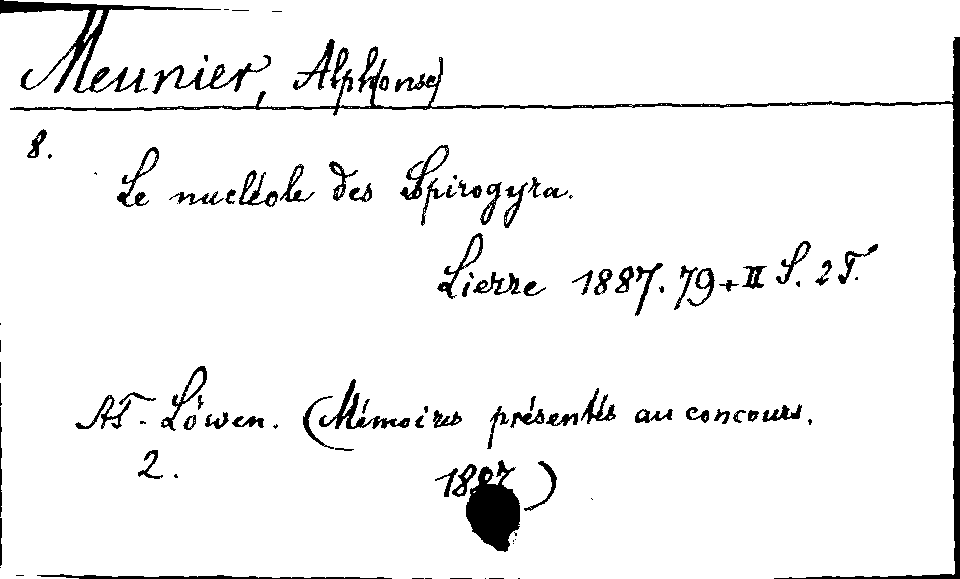 Meunier, Alph(onse)
8.
Le nucléole des Spirogyra.
Lierre 1887. 79 + II S. 2 T.
AT - Löwen. (Mémoires présentés au concours.
2. 1887)